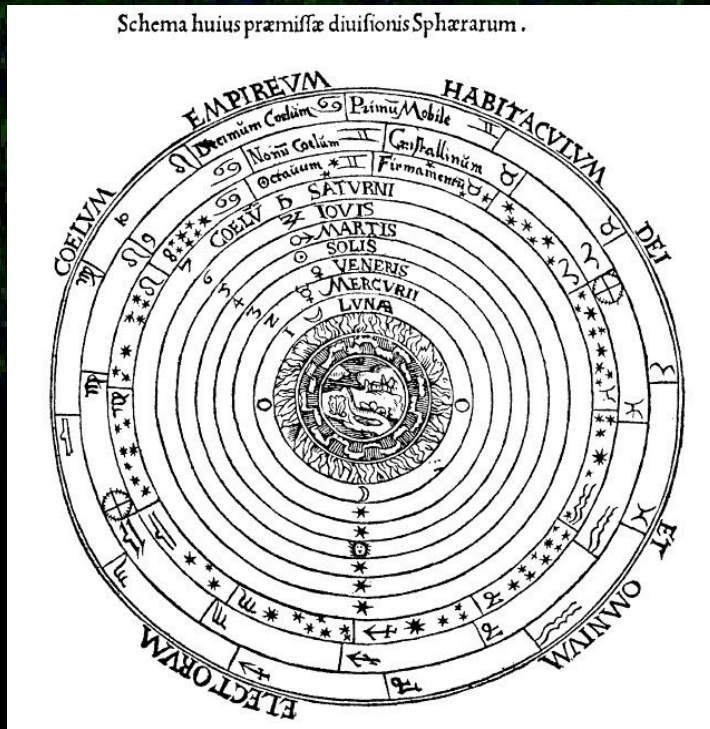 Schema huius præmissæ diuisionis Sphærarum .
COELVM EMPIREVM HABITACVLVM DEI ET OMNIVM ELECTORVM
Decimum Coelum Primũ Mobile
Nonũ Coelum Cristallinum
Octauum Firmamentũ
7 COELV̄ ♄ SATURNI
6 ♃ IOVIS
5 ♂ MARTIS
4 ☉ SOLIS
3 ♀ VENERIS
2 ☿ MERCURII
1 ☽ LVNÆ